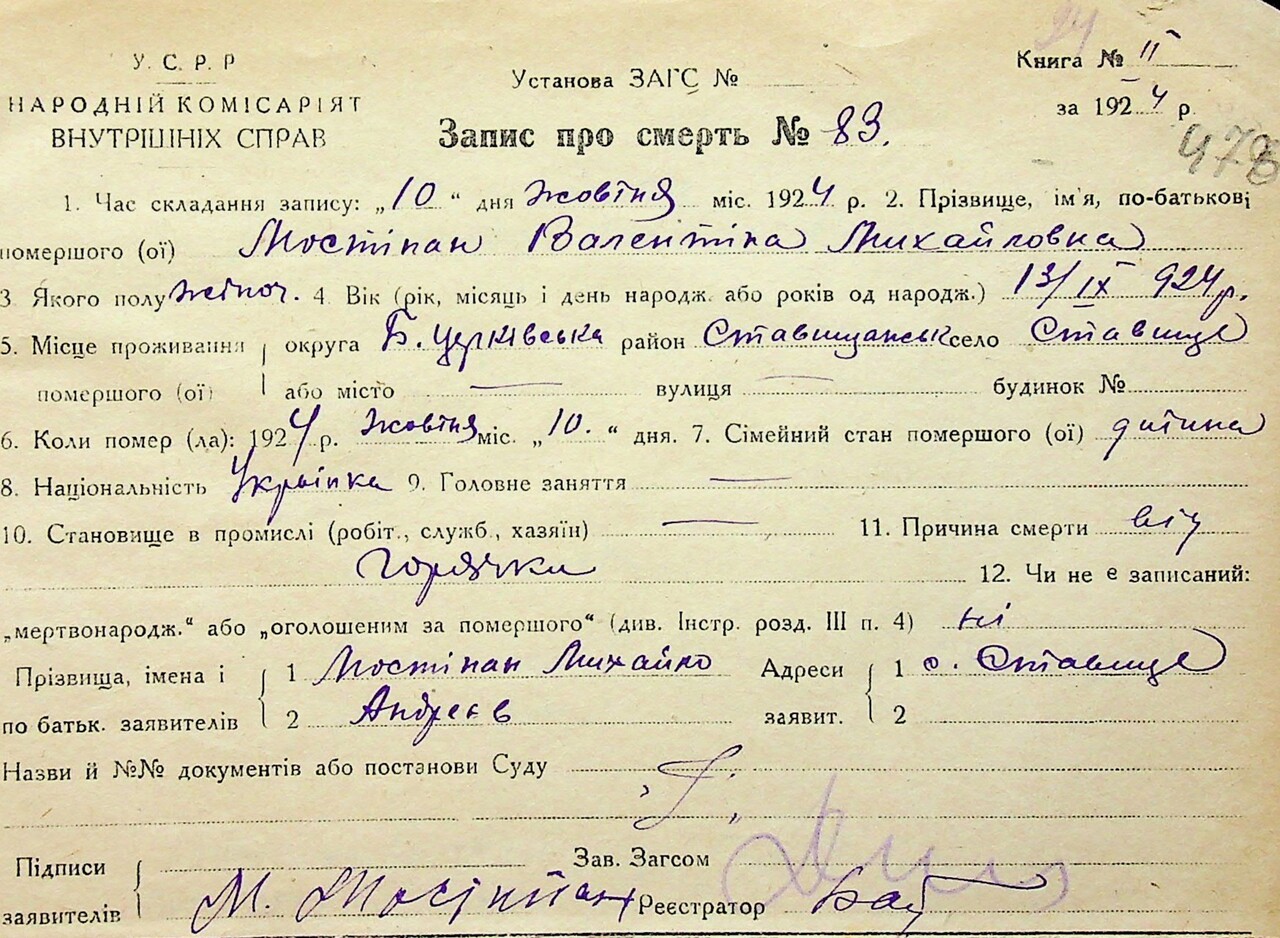 94
У. С. Р. Р
НАРОДНІЙ КОМІСАРІЯТ
ВНУТРІШНІХ СПРАВ
Установа ЗАГС №
Книга № II
за 1924 р.
478
Запис про смерть № 83.
1. Час складання запису: „10 “ дня жовтня міс. 1924 р. 2. Прізвище, ім'я, по-батькові
помершого (ої) Мостіпан Валентіна Михайловна
3 Якого полу жіноч. 4. Вік (рік, місяць і день народж. або років од народж.) 13/IX 924 р.
5. Місце проживання округа Б. Церківська район Ставищанськ село Ставище
помершого (ої) або місто — вулиця — будинок №
6. Коли помер (ла): 1924 р. жовтня міс. „10. “ дня. 7. Сімейний стан помершого (ої) дитина
8. Національність Українка 9. Головне заняття —
10. Становище в промислі (робіт., служб., хазяїн) — 11. Причина смерти від
горячки 12. Чи не є записаний:
„мертвонародж.“ або „оголошеним за помершого“ (див. Інстр. розд. III п. 4) ні
Прізвища, імена і 1 Мостіпан Михайло Адреси 1 с. Ставище
по батьк. заявителів 2 Андреєв заявит. 2
Назви й №№ документів або постанови Суду
Підписи Зав. Загсом
заявителів М. Мостіпан Реєстратор